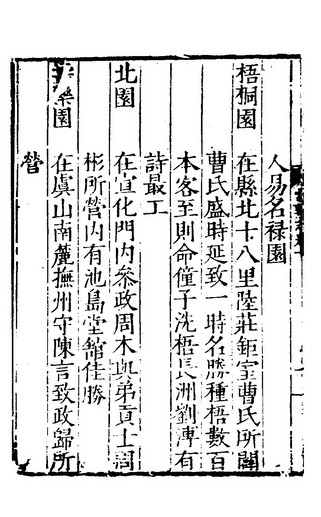 人易名祿園
梧桐園 在縣北十八里陸莊鉅室曹氏所闢
曹氏盛時延致一時名勝種梧數百
本客至則命僮子洗梧長洲劉溥有
詩最工
北園 在宣化門内叅政周木與弟貢士周
彬所營内有池島堂舘佳勝
樂園 在虞山南麓撫州守陳言致政歸所
營